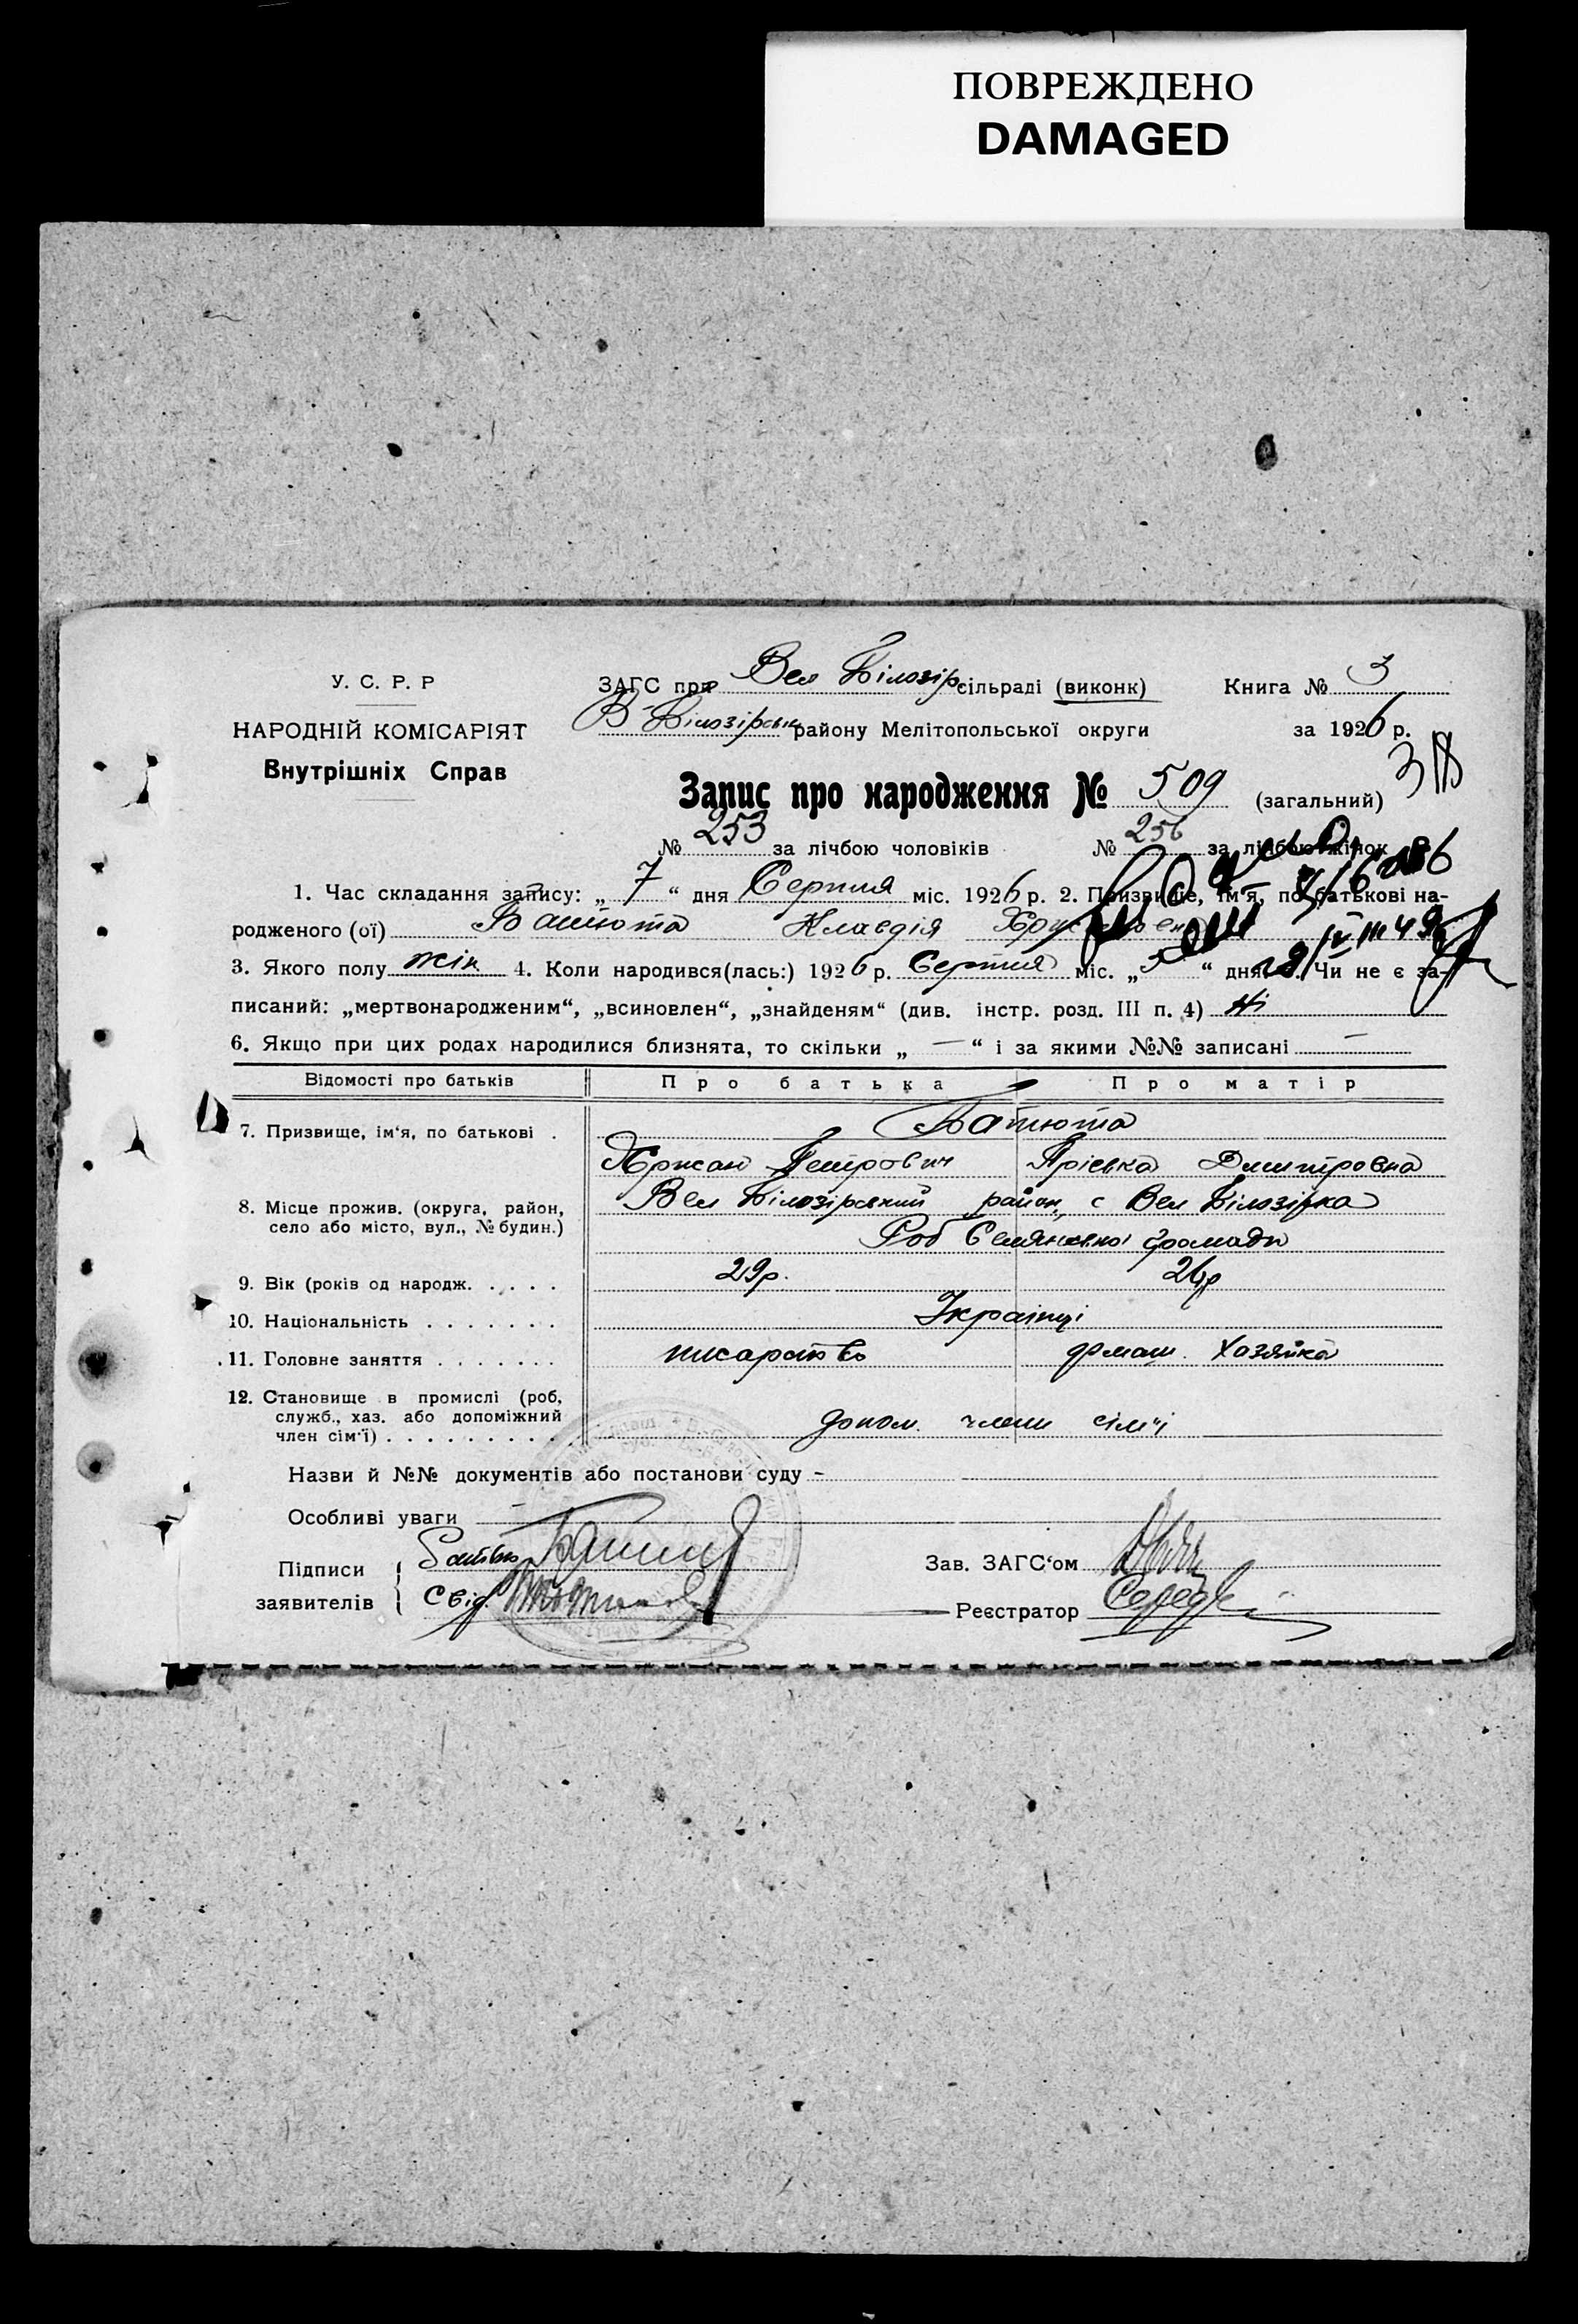 ПОВРЕЖДЕНО
DAMAGED
У. С. Р. Р
НАРОДНІЙ КОМІСАРІЯТ
Внутрішніх Справ
ЗАГС при Вел Білозір сільраді (виконк) Книга № 3
В-Білозірськ району Мелітопольської округи за 1926 р.
Запис про народження № 509 (загальний)
№ 253 за лічбою чоловіків № 256 за лічбою жінок
1. Час складання запису: „ 7 “ дня Серпня міс. 1926 р. 2. Призвище, ім'я, по батькові на-
родженого (ої) Ватюта Клавдія
3. Якого полу жін 4. Коли народився(лась:) 1926 р. Серпня міс. „ 5 “ дня 5. Чи не є за-
писаний: „мертвонародженим“, „всиновлен“, „знайденям“ (див. інстр. розд. III п. 4) Ні
6. Якщо при цих родах народилися близнята, то скільки „ — “ і за якими №№ записані —
Відомості про батьків Про батька Про матір
7. Призвище, ім‘я, по батькові . Ватюта
Хрисан Петрович Дмитровна
8. Місце прожив. (округа, район, Вел Білозірський район, с Вел Білозірка
село або місто, вул., № будин.) громади
9. Вік (років од народж. . . . . 29р. 26р
10. Національність . . . . . . . Українці
11. Головне заняття . . . . . . . писарство домаш. Хазяйка
12. Становище в промислі (роб,
служб., хаз. або допоміжний
член сім'ї) . . . . . . . . . допом. члени сім'ї
Назви й №№ документів або постанови суду -
Особливі уваги —
Підписи Зав. ЗАГС‘ом
заявителів Свід. Реєстратор